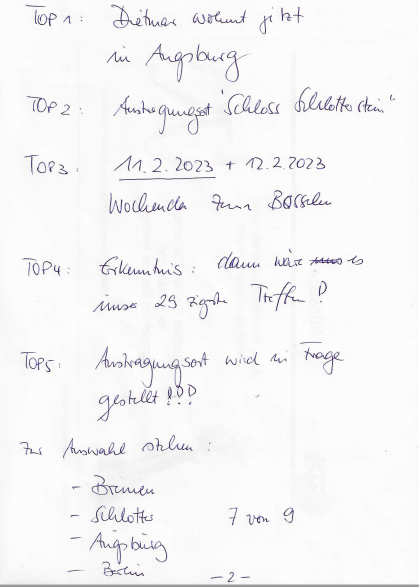 TOP 1: Dietmar wohnt jetzt
in Augsburg
TOP 2: Austragungsort "Schloss Schlotterstein"
TOP3: 11.2.2023 + 12.2.2023
Wochenende zum Bosseln
TOP4: Erkenntnis: dann wäre es
unser 29 zigste Treffen!
TOP5: Austragungsort wird in Frage
gestellt !!!
Zur Auswahl stehen:
- Bremen
- Schlotter 7 von 9
- Augsburg
- Berlin
- 2 -